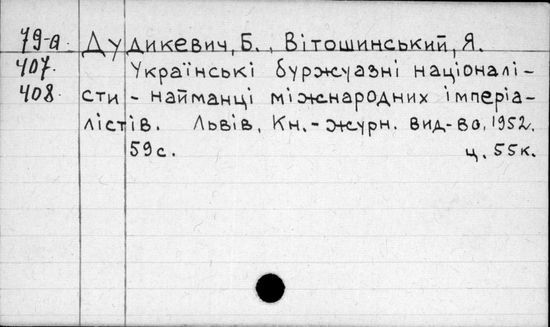 79-а. Дудикевич, Б., Вітошинський, Я.
407. Українські буржуазні націоналі-
408. сти - найманці міжнародних імперіа-
лістів. Львів, Кн.-журн. вид-во, 1952.
59 с. ц. 55 к.